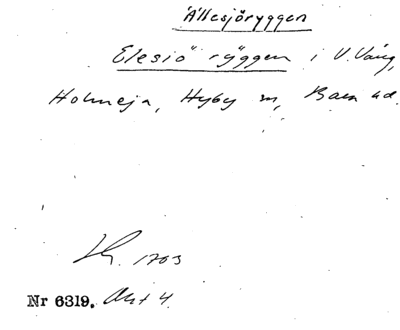 Ällesjöryggen
Elesiö ryggen i V. Vång,
Holmeja, Hyby sn, Bara hd.
1703
Nr 6319. Akt 4.